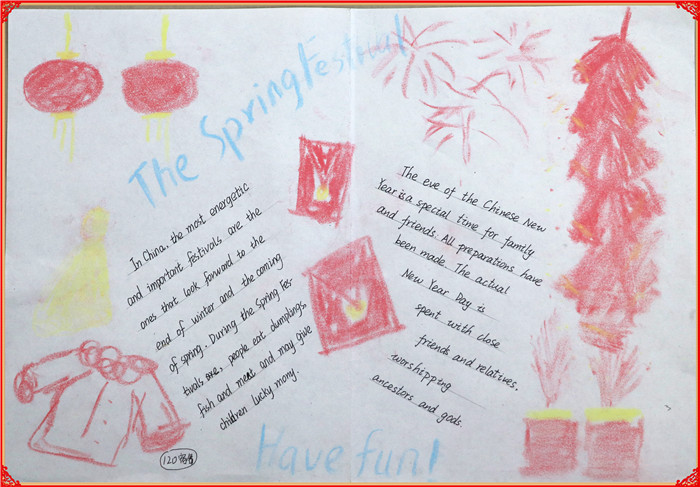 The Spring Festival
In China, the most energetic
and important festivals are the
ones that look forward to the
end of winter and the coming
of spring. During the Spring Fes-
tivals people eat dumplings,
fish and meat and may give
children lucky momy.
The eve of the Chinese New
Year is a special time for family
and friends. All preparations have
been made. The actual
New Year Day is
spent with close
friends and relatives,
worshipping
ancestors and gods.
Have fun!
120